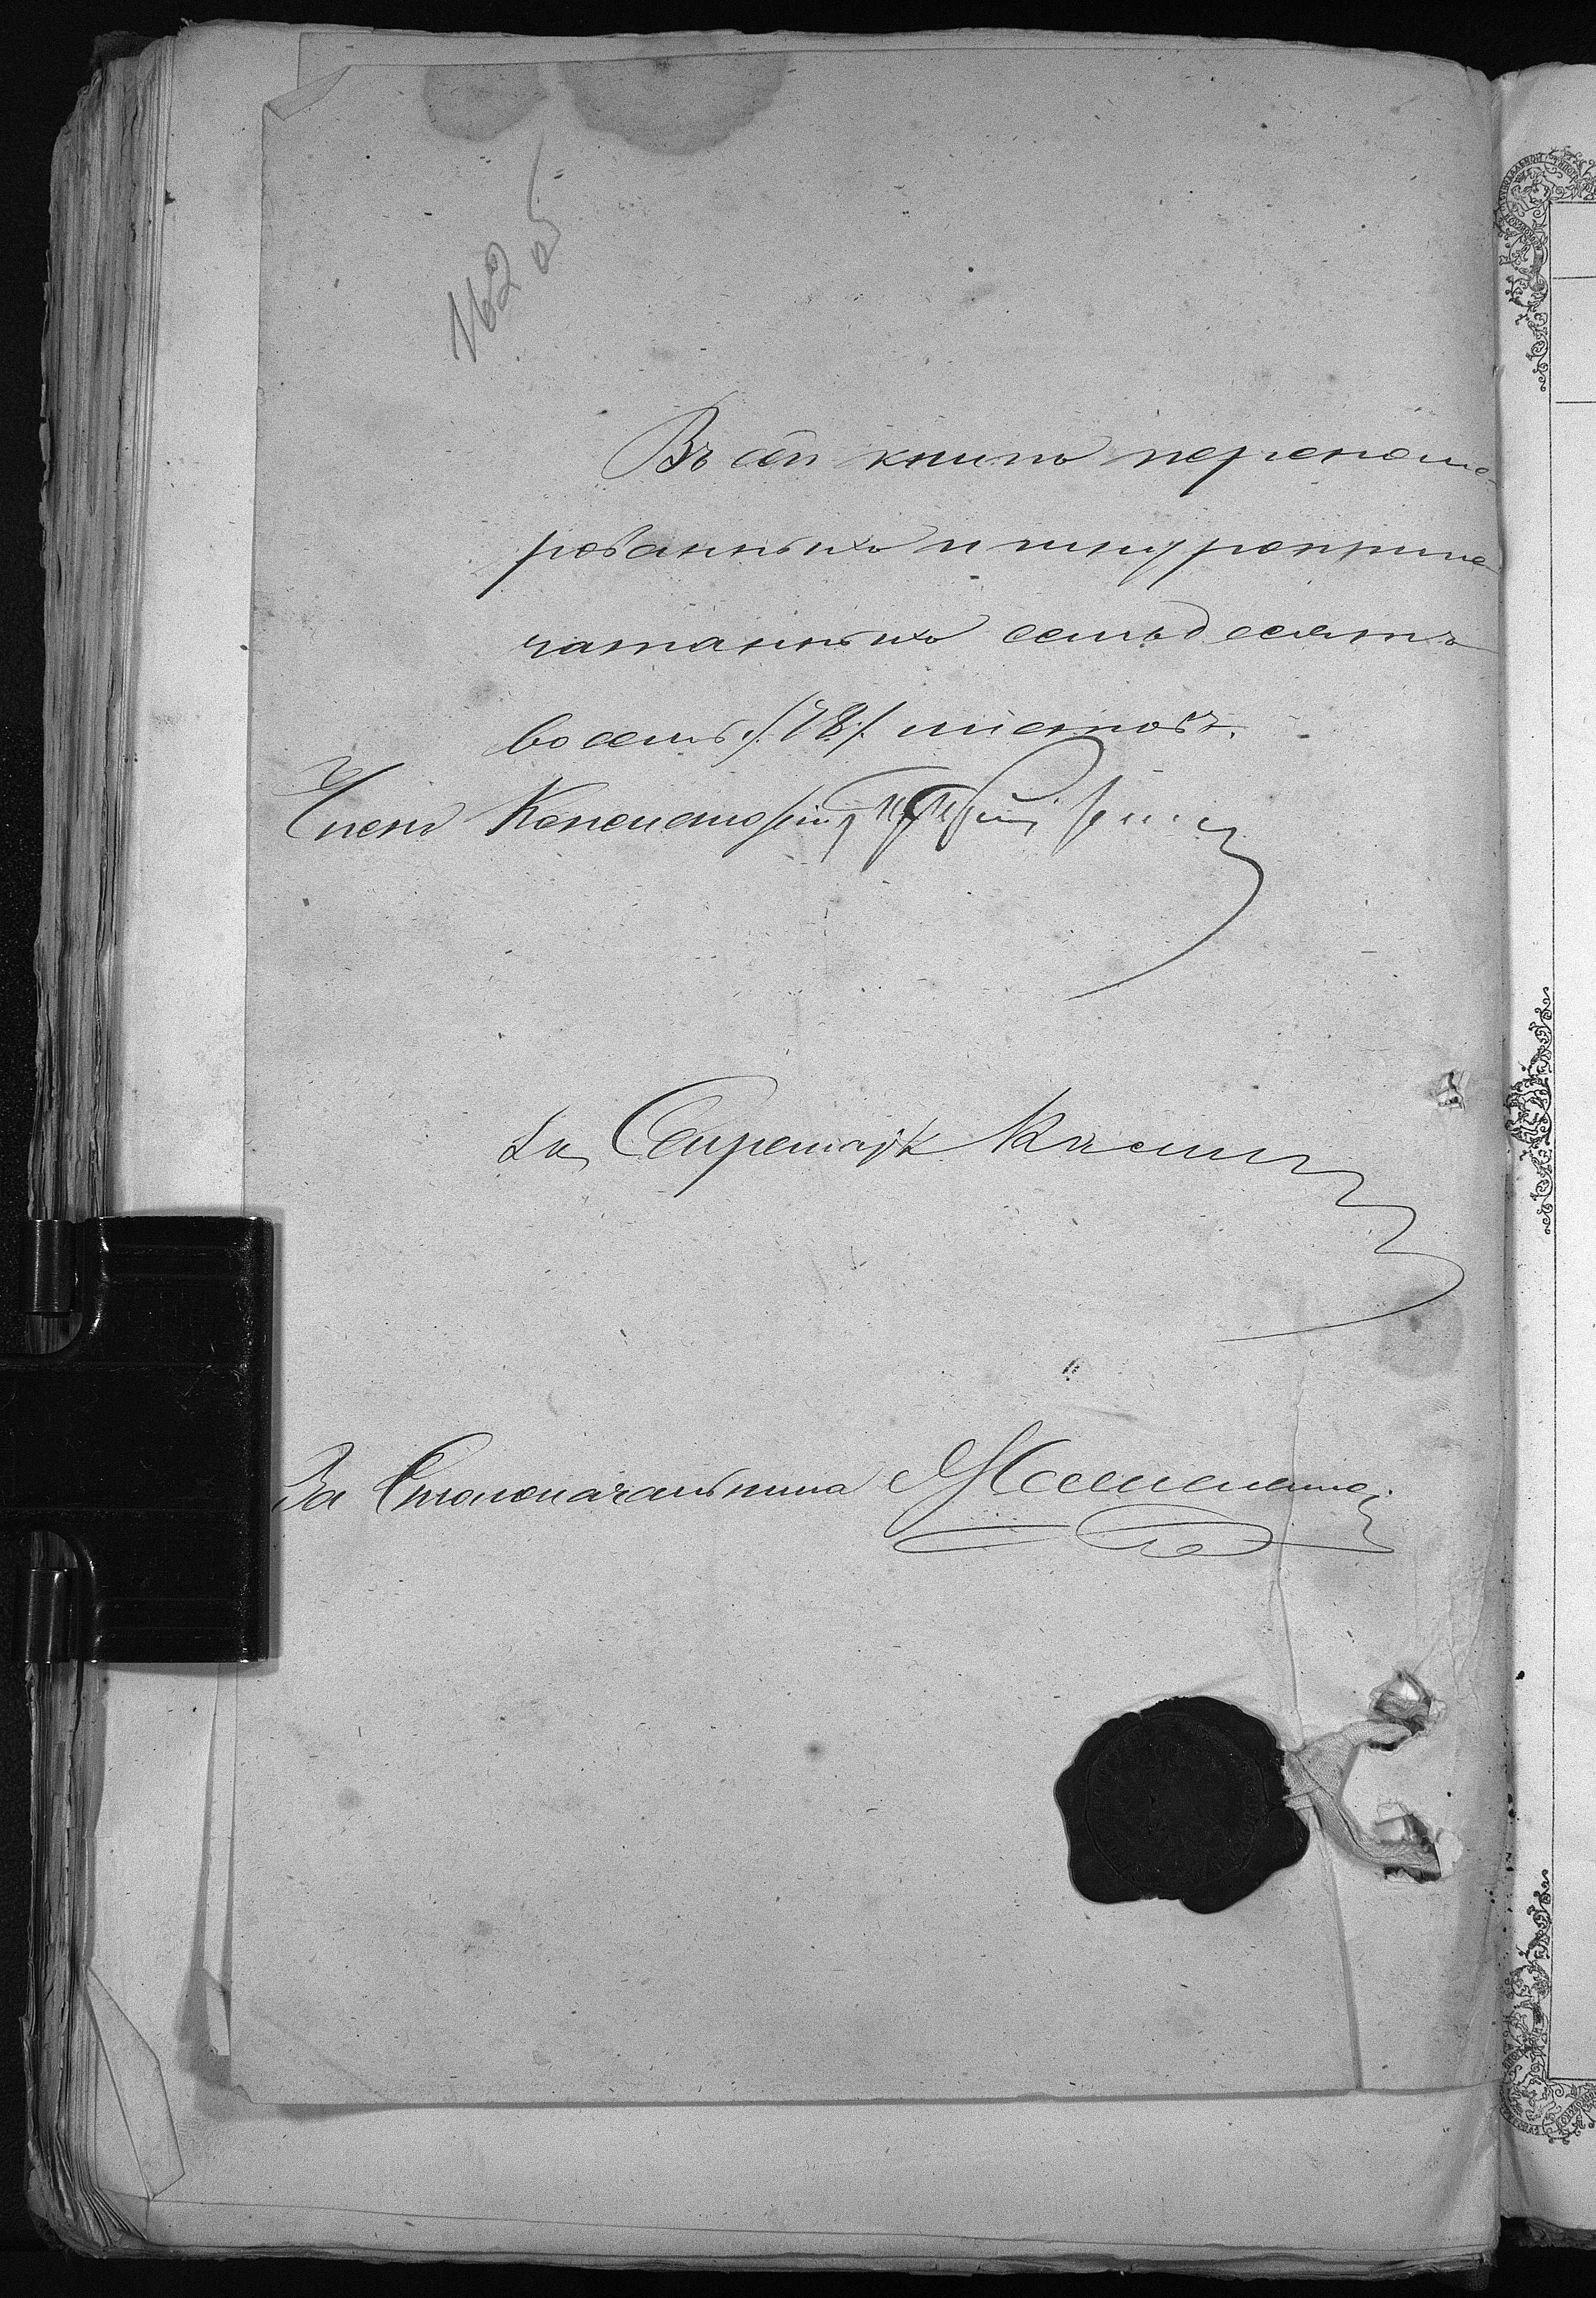 162 об
Въ сей книгѣ перенуме-
рованныхъ и шнуроприпе-
чатанныхъ семьдесятъ
восемь /:78:/ листовъ.
Членъ Консисторіи
Секретарь
За Столоначальника